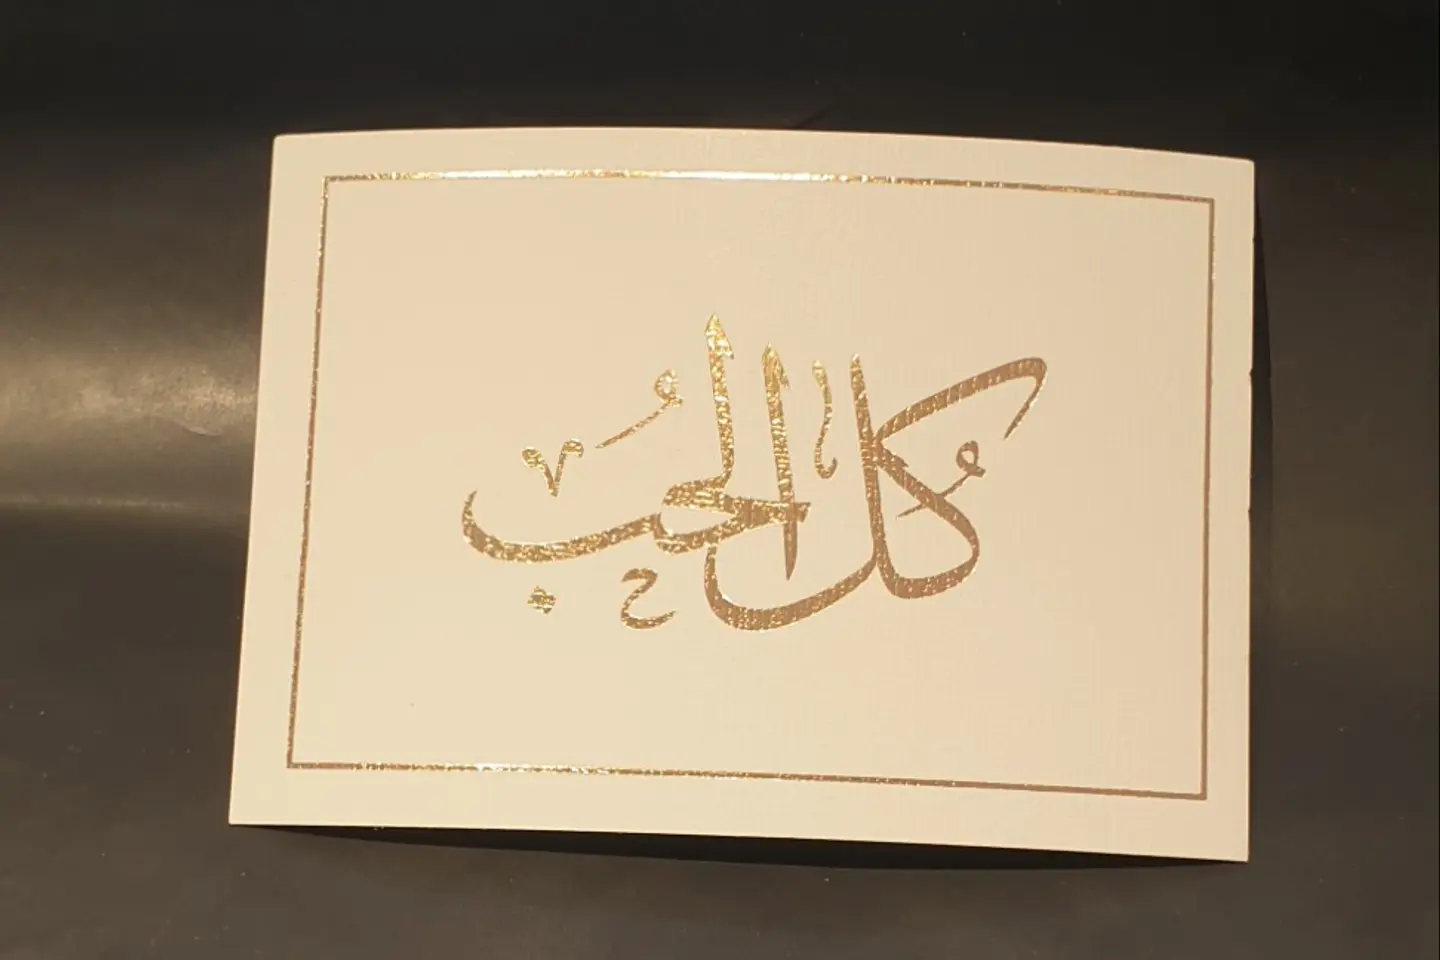 كُل الحُب